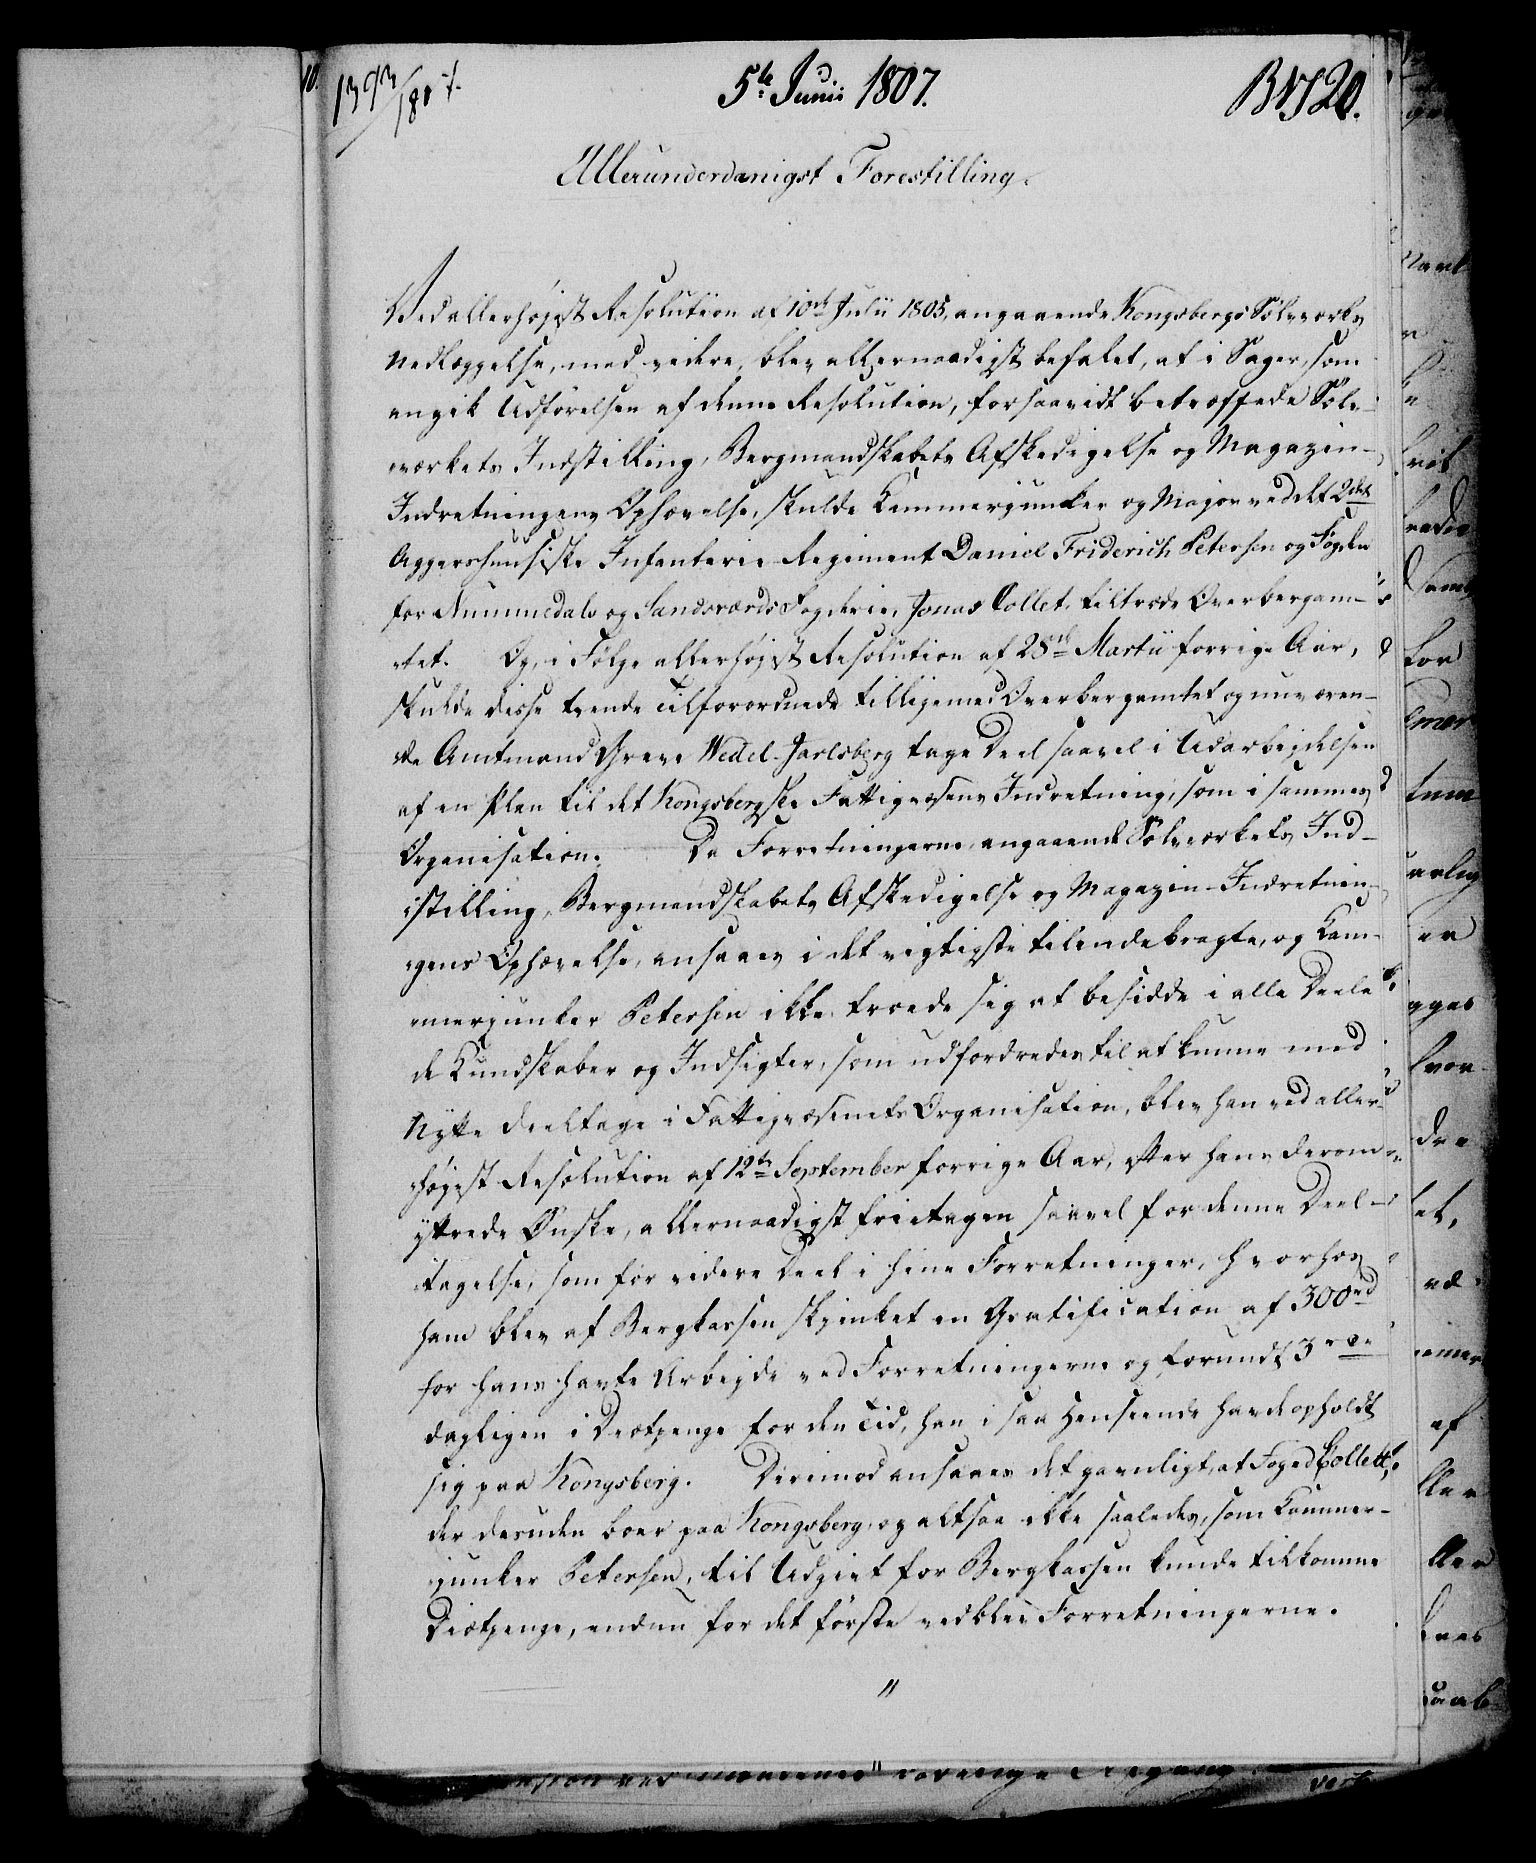 1393/1807.
5te Junii 1807.
B N 20.
Allerunderdanigst Forestilling.
Ved allerhøjest Resolution af 10de Julii 1805, angaaende Kongsbergs Sølvverks
Nedlæggelse, med videre, blev allernaadigst befalet, at i Sager, som
angik Udførelsen af denne Resolution, forsaavidt betræffede Sølv-
værkets Indstilling, Bergmandskabets Afskedigelse og Magazin-
Indretningens Ophævelse, skulde Kammerjunker og Major ved det 2det
Aggershuusiske Infanterie-Regiment Daniel Friderich Petersen og Fogden
for Nummedals og Sandsværds Fogderie, Jonas Collet, tiltræde Overbergam-
tet. Og, i Følge allerhøjest Resolution af 28de Martii forrige Aar,
skulde disse tvende Tilforordnede tilligemed Overbergamtet og nuværen-
de Amtmand Greve Wedel-Jarlsberg tage Deel saavel i Udarbejdelsen
af en Plan til det Kongsbergske Fattigvæsens Indretning, som i sammes
Organisation. Da Forretningerne, angaaende Sølvværkets Ind-
stilling, Bergmandskabets Afskedigelse og Magazin-Indretnin-
gens Ophævelse, ansaaes i det vigtigste tilendebragte, og Kam-
merjunker Petersen ikke troede sig at besidde i alle Deele
de Kundskaber og Indsigter, som udfordredes til at kunne med
Nytte deeltage i Fattigvæsenets Organisation, blev han ved aller-
højest Resolution af 12te September forrige Aar, efter hans derom
yttrede Ønske, allernaadigst fritagen saavel for denne Deel-
tagelse, som for videre Deel i hine Forretninger, hvorhos
ham blev af Bergkassen skjænket en Gratification af 300rd
for hans havte Arbejde ved Forretningerne og forundt 3 rd
dagligen i Diætpenge for den Tid, han i saa Henseende havde opholdt
sig paa Kongsberg. Derimod ansaaes det gavnligt, at Foged Collett,
der desuden boer paa Kongsberg, og altsaa ikke saaledes, som Kammer-
junker Petersen, til Udgivt for Bergkassen kunde tilkomme
Diætpenge, endnu for det første vedblev Forretningerne.
"